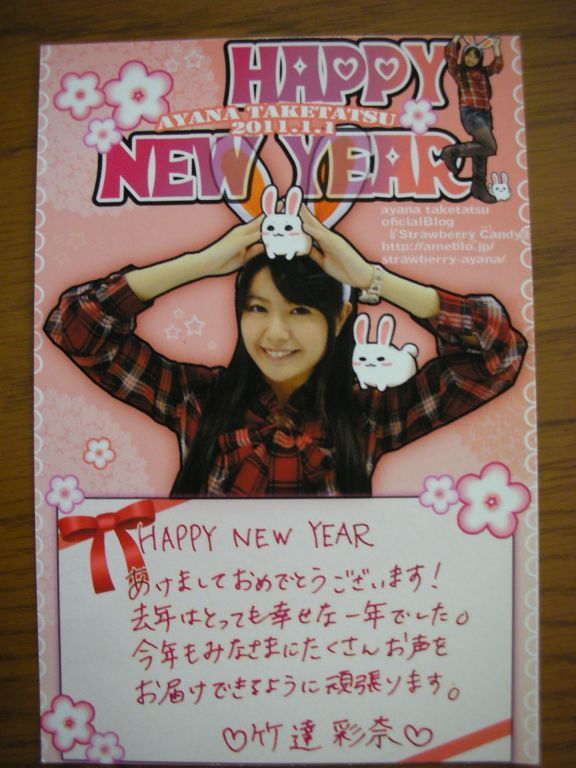 HAPPY
AYANA TAKETATSU
2011.1.1
NEW YEAR
ayana taketatsu
oficialBlog
『Strawberry Candy』
http://ameblo.jp/
strawberry-ayana/
HAPPY NEW YEAR
あけましておめでとうございます！
去年はとっても幸せな一年でした。
今年もみなさまにたくさんお声を
お届けできるように頑張ります。
♡竹達彩奈♡